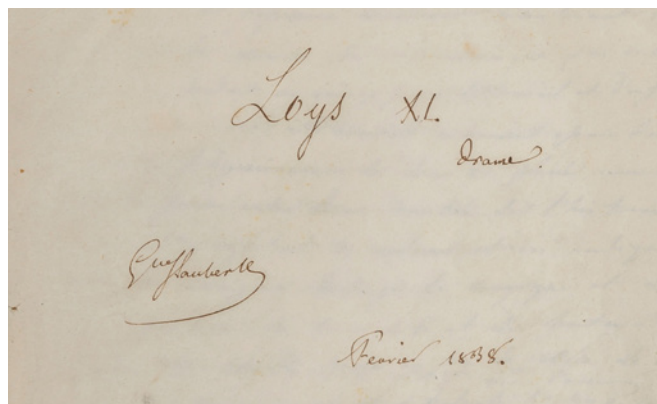 Loys XI.
drame.
Gve Flaubert
Fevrier 1838.